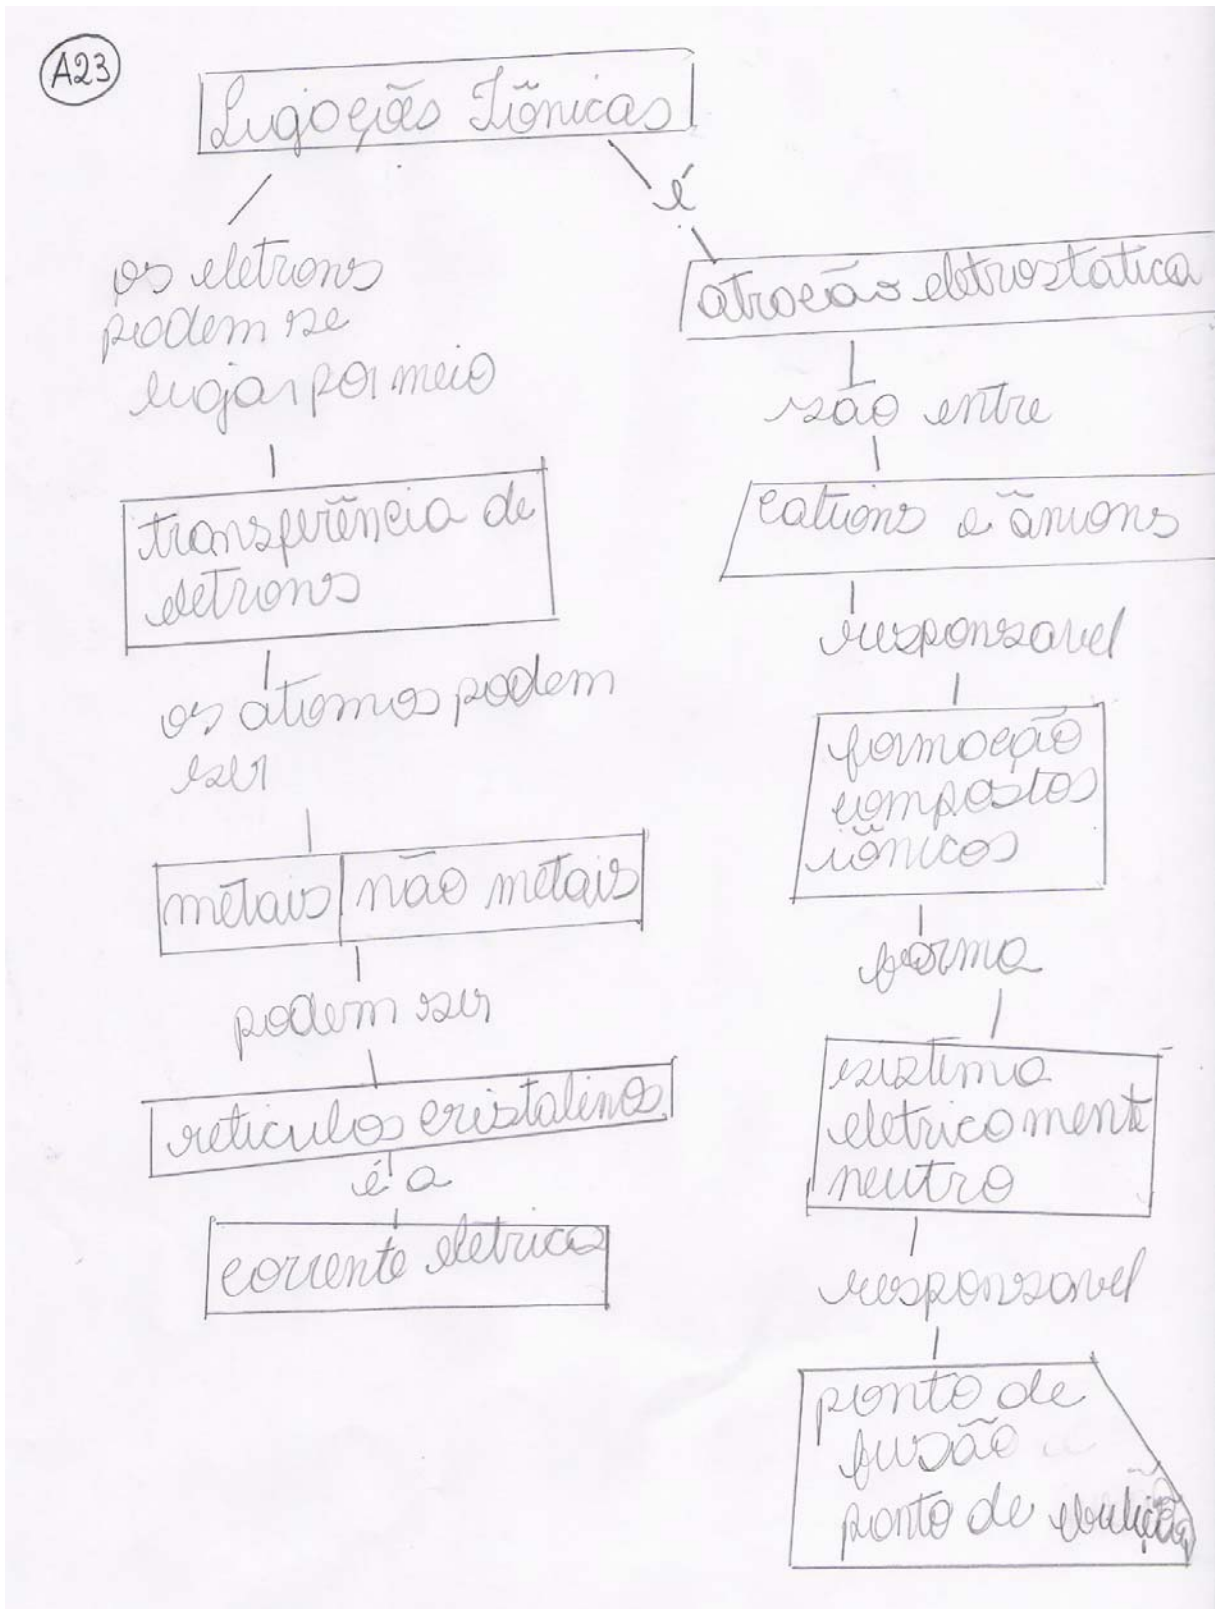 A23
Ligações Iônicas
é
os eletrons
podem se
ligar por meio
transferência de
eletrons
os átomos podem
ser
metais não metais
podem ser
reticulos cristalinos
é a
corrente eletrica
atração eletrostatica
são entre
cations e ânions
responsavel
formação
compostos
iônicos
forma
sistema
eletricamente
neutro
responsavel
ponto de
fusão
ponto de ebulição